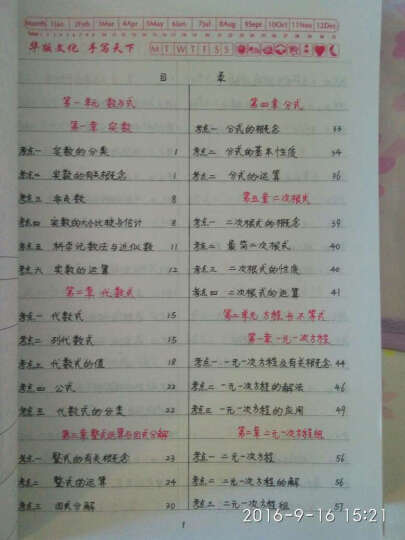 Month 1Jan 2Feb 3Mar 4Apr 5May 6Jun 7Jul 8Aug 9Sept 10Oct 11Nov 12Dec
华版文化 手写天下
M T W T F S S
目 录
第一单元 数与式
第一章 实数
考点一 实数的分类 1
考点二 实数的有关概念 1
考点三 非负数 8
考点四 实数的大小比较与估计 8
考点五 科学记数法与近似数 11
考点六 实数的运算 12
第二章 代数式
考点一 代数式 15
考点二 列代数式 15
考点三 代数式的值 18
考点四 公式 22
考点五 代数式的分类 22
第三章 整式运算与因式分解
考点一 整式的有关概念 23
考点二 整式的运算 24
考点三 因式分解 30
第四章 分式
考点一 分式的概念 33
考点二 分式的基本性质 34
考点三 分式的运算 36
第五章 二次根式
考点一 二次根式的概念 39
考点二 最简二次根式 40
考点三 二次根式的性质 40
考点四 二次根式的运算 41
第二单元 方程与不等式
第一章 一元一次方程
考点一 一元一次方程及有关概念 44
考点二 一元一次方程的解法 46
考点三 一元一次方程的应用 49
第二章 二元一次方程组
考点一 二元一次方程 56
考点二 二元一次方程的解 56
考点三 二元一次方程组 57
1
2016-9-16 15:21